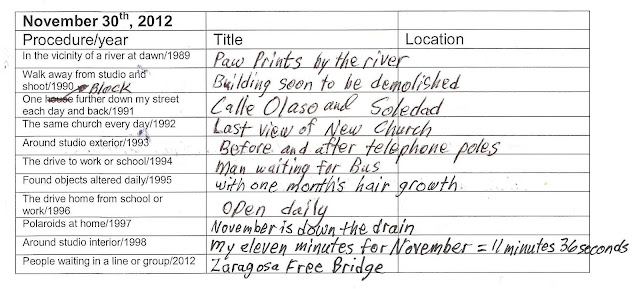 November 30th, 2012
Procedure/year Title Location
In the vicinity of a river at dawn/1989 Paw Prints by the river
Walk away from studio and
shoot/1990 Block Building soon to be demolished
One house further down my street
each day and back/1991 Calle Olaso and Soledad
The same church every day/1992 Last view of New Church
Around studio exterior/1993 Before and after telephone poles
The drive to work or school/1994 Man waiting for Bus
Found objects altered daily/1995 with one month's hair growth.
The drive home from school or
work/1996 Open daily
Polaroids at home/1997 November is down the drain
Around studio interior/1998 My eleven minutes for November = 11 minutes 36 seconds
People waiting in a line or group/2012 Zaragosa Free Bridge